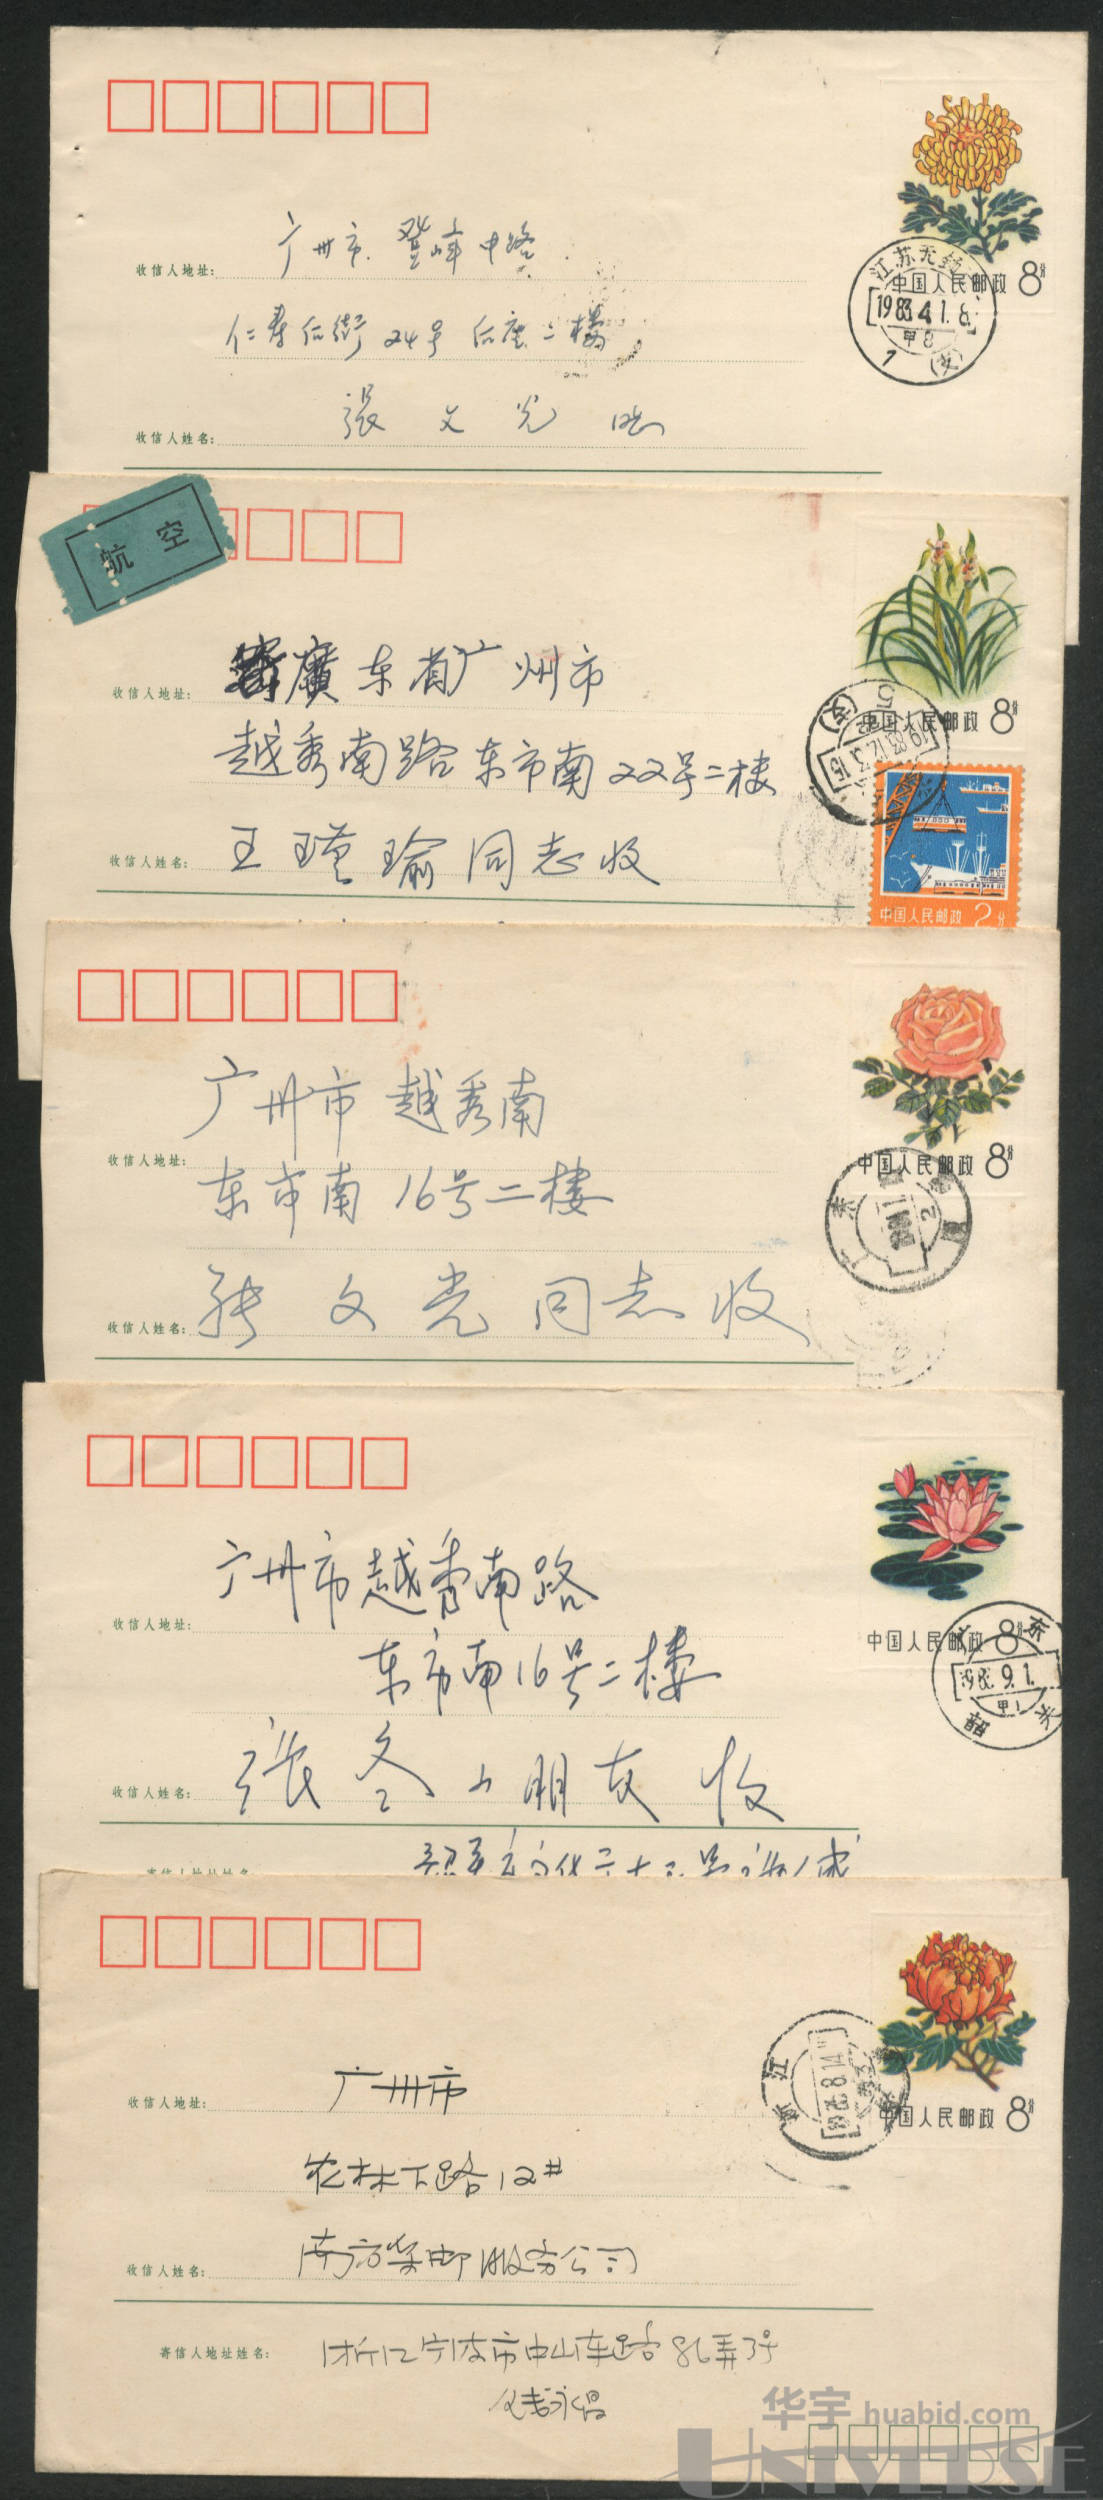 江苏无
1983.4.1.8
甲8
1
中国人民邮政 8分
广州市. 登峰中路
收信人地址:
仁寿后街 24号 后座二楼
張文光
收信人姓名:
航空
中国人民邮政 8分
1983.12.3.15
中国人民邮政 2分
廣东省广州市
收信人地址:
越秀南路东市南22号二楼
王瑾瑜同志收
收信人姓名:
中国人民邮政 8分
广州市越秀南
收信人地址:
东市南16号二楼
张文光同志收
收信人姓名:
中国人民邮政 8分
东
9.1.
甲1
韶
广州市越秀南路
收信人地址:
东市南16号二楼
張冬小朋友收
收信人姓名:
寄信人地址姓名:
中国人民邮政 8分
浙江
广州市
收信人地址:
农林下路12#
南方集邮服务公司
收信人姓名:
寄信人地址姓名:
浙江宁波市中山东路86弄3号
钱永昌
华宇 huabid.com
UNIVERSE